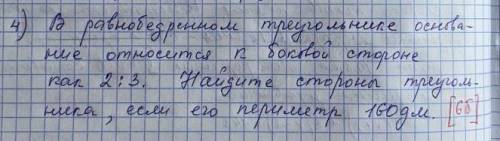 4) В равнобедренном треугольнике основа-
ние относится к боковой стороне
как 2:3. Найдите стороны треуголь-
ника, если его периметр 160дм. [6б]